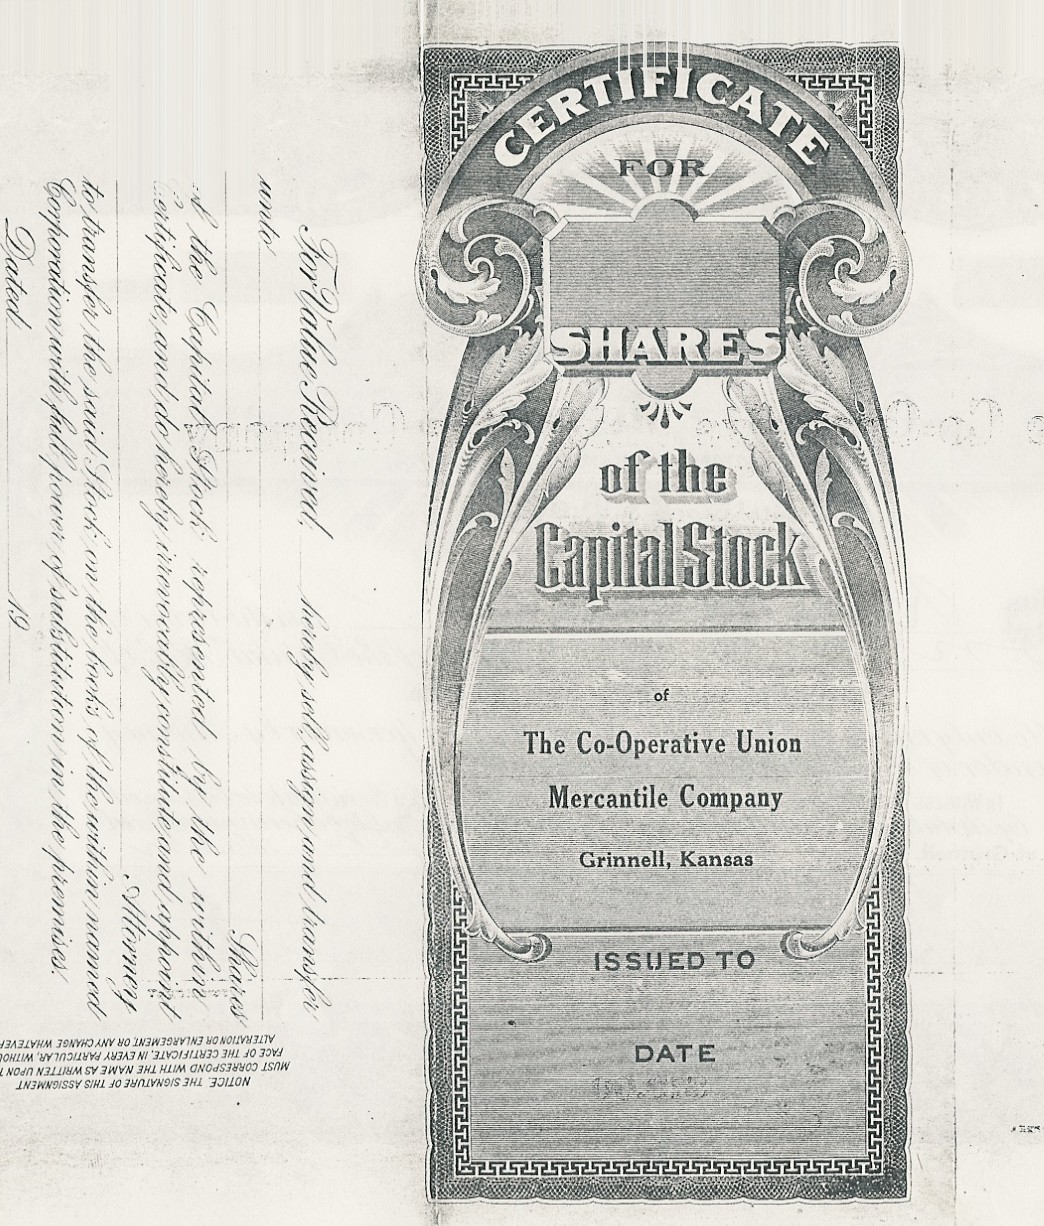 CERTIFICATE
FOR
SHARES
of the
Capital Stock
of
The Co-Operative Union
Mercantile Company
Grinnell, Kansas
ISSUED TO
DATE
For Value Received, hereby sell, assign and transfer
unto
Shares
of the Capital Stock represented by the within
Certificate, and do hereby irrevocably constitute and appoint
Attorney
to transfer the said Stock on the books of the within named
Corporation with full power of substitution in the premises.
Dated 19
NOTICE. THE SIGNATURE OF THIS ASSIGNMENT
MUST CORRESPOND WITH THE NAME AS WRITTEN UPON
FACE OF THE CERTIFICATE, IN EVERY PARTICULAR, WITHOU
ALTERATION OR ENLARGEMENT, OR ANY CHANGE WHATEVER